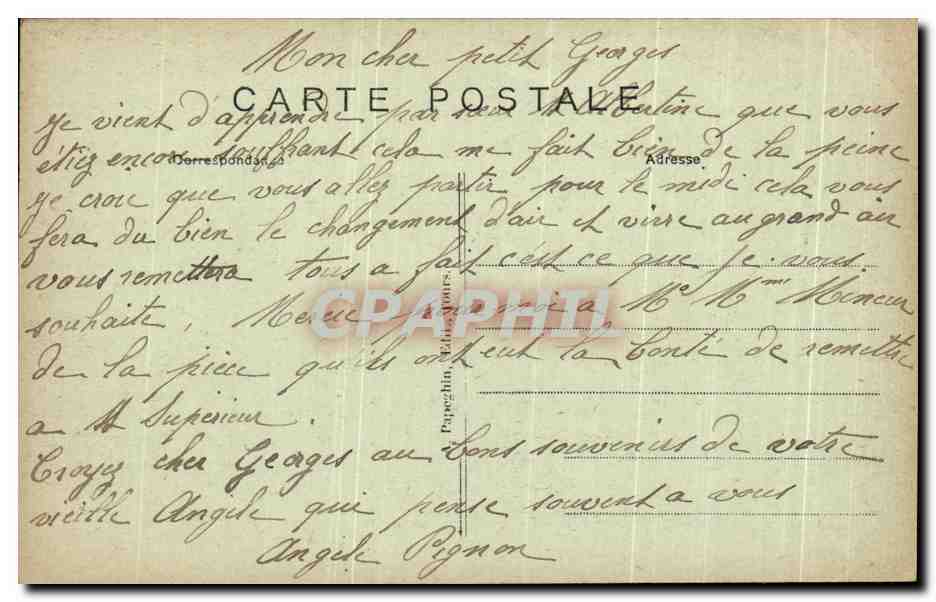 Mon cher petit Georges
CARTE POSTALE
Je vient d'apprendre par sœur Albertine que vous
étiez encore souffrant cela me fait bien de la peine
Correspondance
Adresse
Je croie que vous allez partir pour le midi cela vous
fera du bien le changement d'air et vivre au grand air
vous remettera tous a fait c'est ce que Je vous
souhaite, Mercie pour moi a Mr Mme Meneur
CPAPHIL
de la pièce qu'ils ont eut la bonté de remettre
a Supérieur.
Croyez cher Georges au bons souvenirs de votre
vieille Angèle qui pense souvent a vous
Angèle Pignon
Papeghin, Edit., Tours.